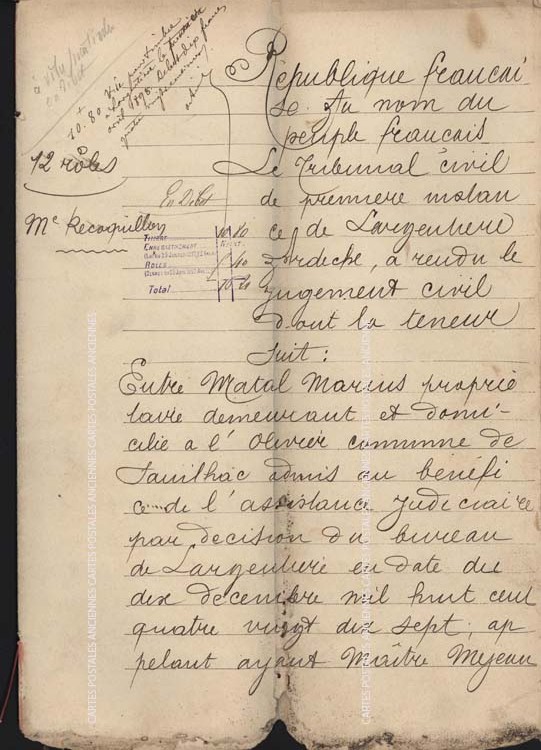 à viser
en débet
10.80
12 rôles
En Débet
Me Recoquillon
TIMBRE
ENREGISTREMENT
ROLES
Total
République françai
se. Au nom du
peuple français
Le Tribunal civil
de première instan
ce de Largentière
Ardèche, a rendu le
jugement civil
dont la teneur
suit :
Entre Matal Marius proprié
taire demeurant et domi-
cilié à l'Olivier commune de
Sauilhac admis au bénéfi
ce de l'assistance judiciaire
par décision du bureau
de Largentière en date du
dix décembre mil huit cent
quatre vingt dix sept, ap
pelant ayant Maître Mejean
CARTES POSTALES ANCIENNES CARTES POSTALES ANCIENNES
CARTES POSTALES ANCIENNES CARTES POSTALES ANCIENNES